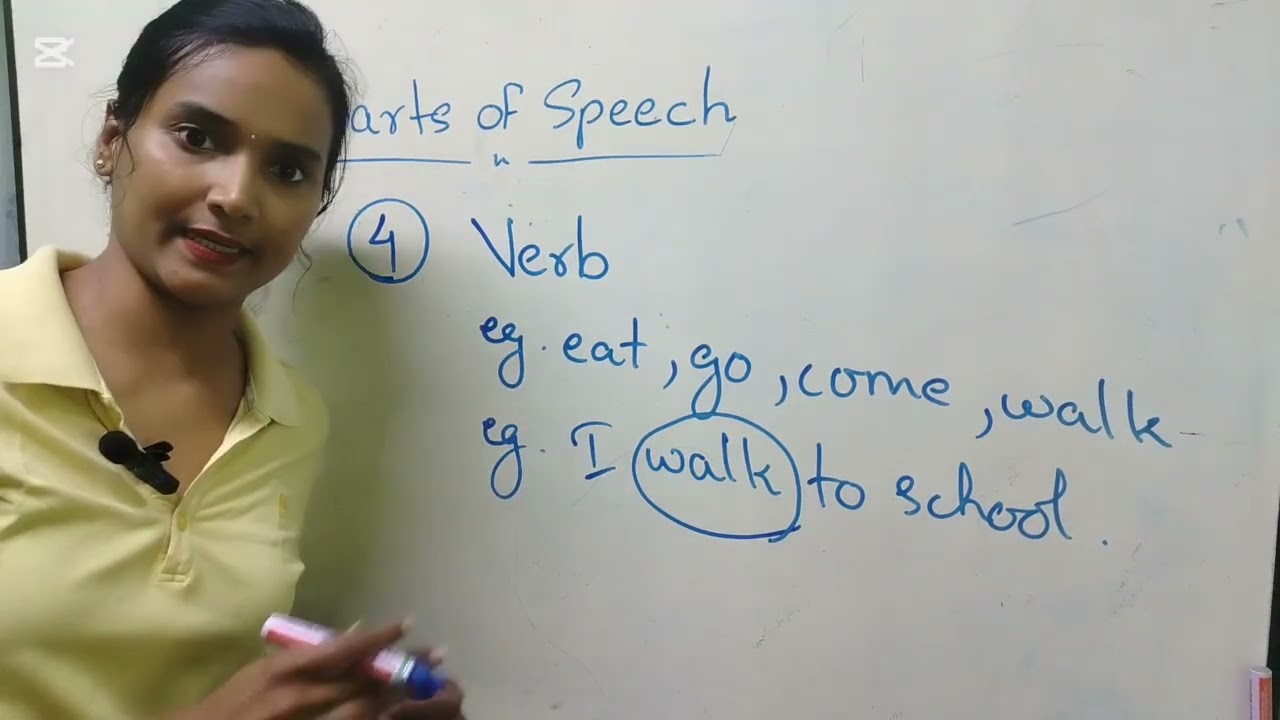 arts of Speech
4 Verb
eg. eat, go, come, walk
eg. I walk to school.